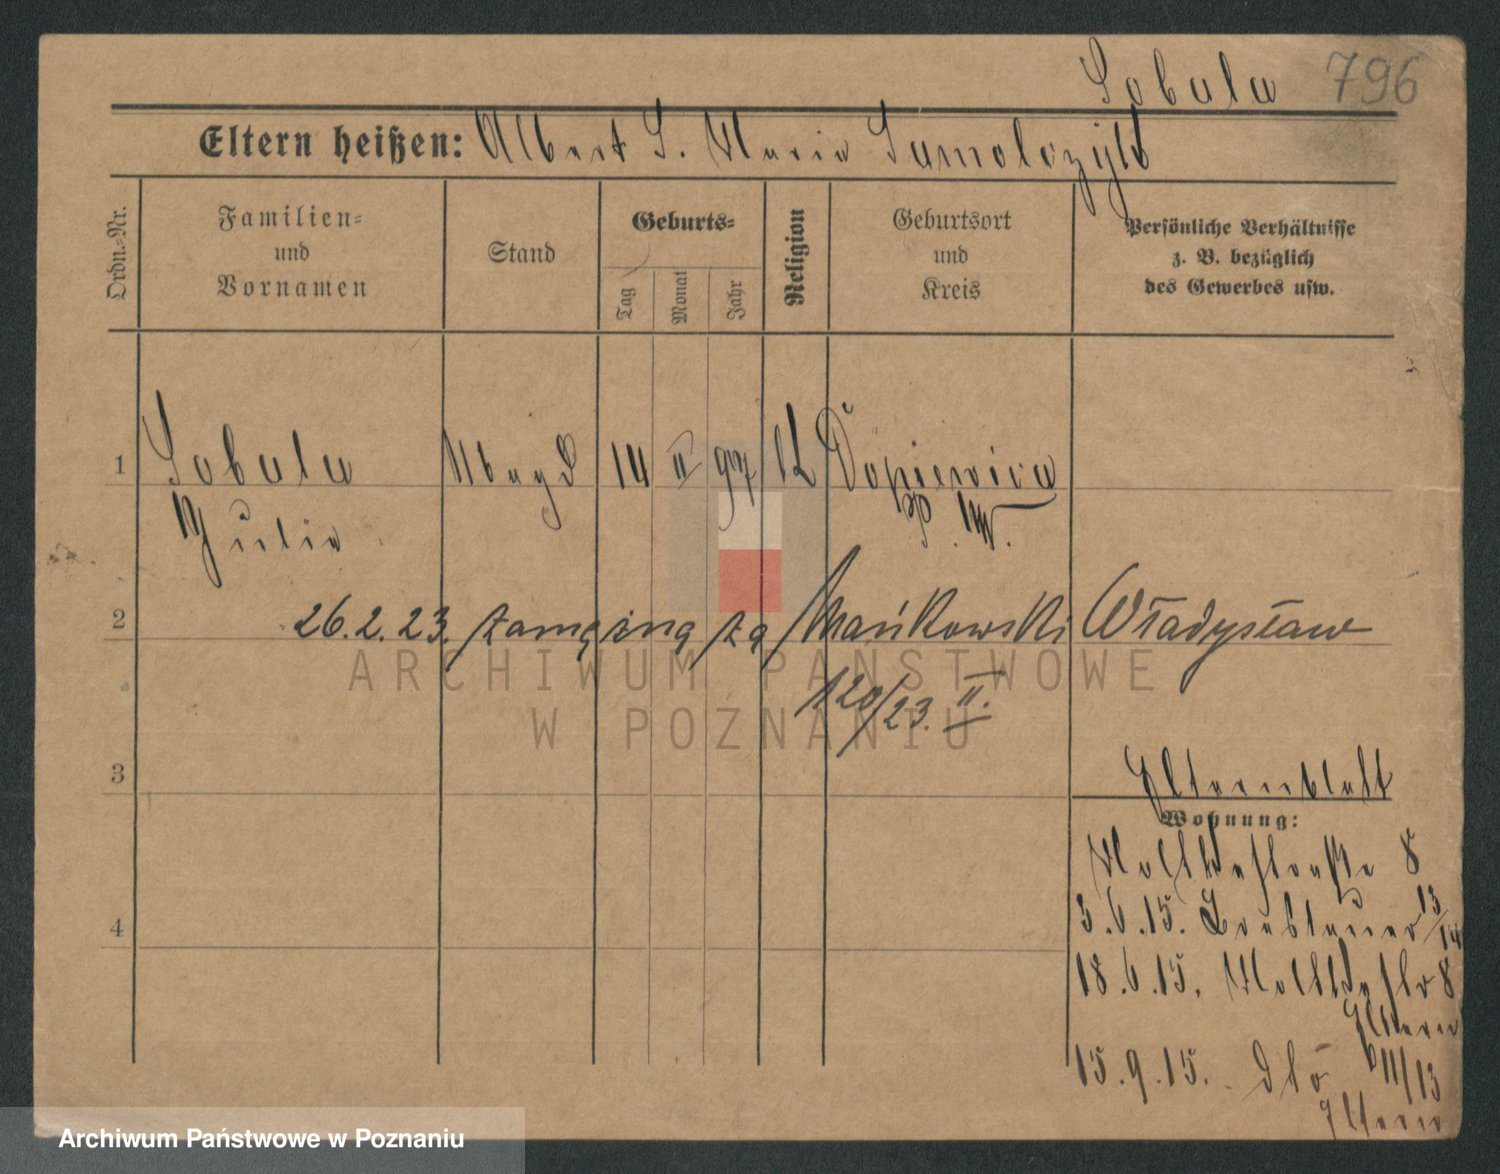 Sobala 796
Eltern heißen: Albert S. Maria Samolczyk
Ordn.-Nr.
Familien-
und
Vornamen
Stand
Geburts-
Tag
Monat
Jahr
Religion
Geburtsort
und
Kreis
Persönliche Verhältnisse
z. B. bezüglich
des Gewerbes usw.
1 Sobala Magd 14 II 97 k Dopiewiec
Julie P. W.
2 26.2.23. zamężna za Mańkowski Władysław
120/23. II.
3 Elternblatt
Wohnung:
Moltkestraße 8
3.6.15. Breslauer 13/14
18.6.15. Moltkestr 8
Eltern
4
15.9.15. dto
Eltern
ARCHIWUM PAŃSTWOWE
W POZNANIU
Archiwum Państwowe w Poznaniu